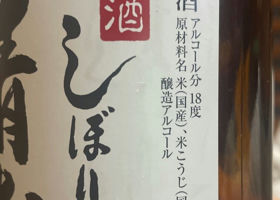 酒
アルコール分 18度
原材料名 米(国産)、米こうじ(国
醸造アルコール
酒
しぼり